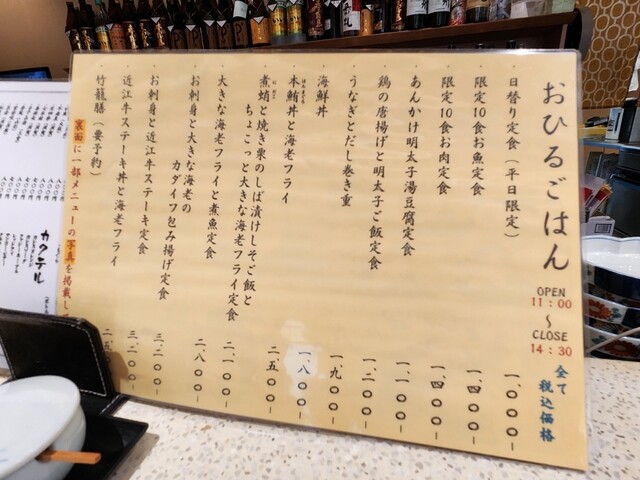 おひるごはん
OPEN
11：00
～
CLOSE
14：30
全て
税込価格
日替り定食（平日限定） 一、〇〇〇-
限定10食お魚定食 一、四〇〇-
限定10食お肉定食 一、四〇〇-
あんかけ明太子湯豆腐定食 一、一〇〇-
鶏の唐揚げと明太子ご飯定食 一、二〇〇-
うなぎとだし巻き重 一、九〇〇-
海鮮丼 一、八〇〇-
本鮪丼と海老フライ 二、五〇〇-
煮蛸と焼き栗のしば漬けしそご飯と
ちょこっと大きな海老フライ定食 二、一〇〇-
大きな海老フライと煮魚定食 二、八〇〇-
お刺身と大きな海老の
カダイフ包み揚げ定食 三、二〇〇-
お刺身と近江牛ステーキ定食 三、二〇〇-
近江牛ステーキ丼と海老フライ 二、五
竹籠膳（要予約）
裏面に一部メニューの写真を掲載し
カクテル